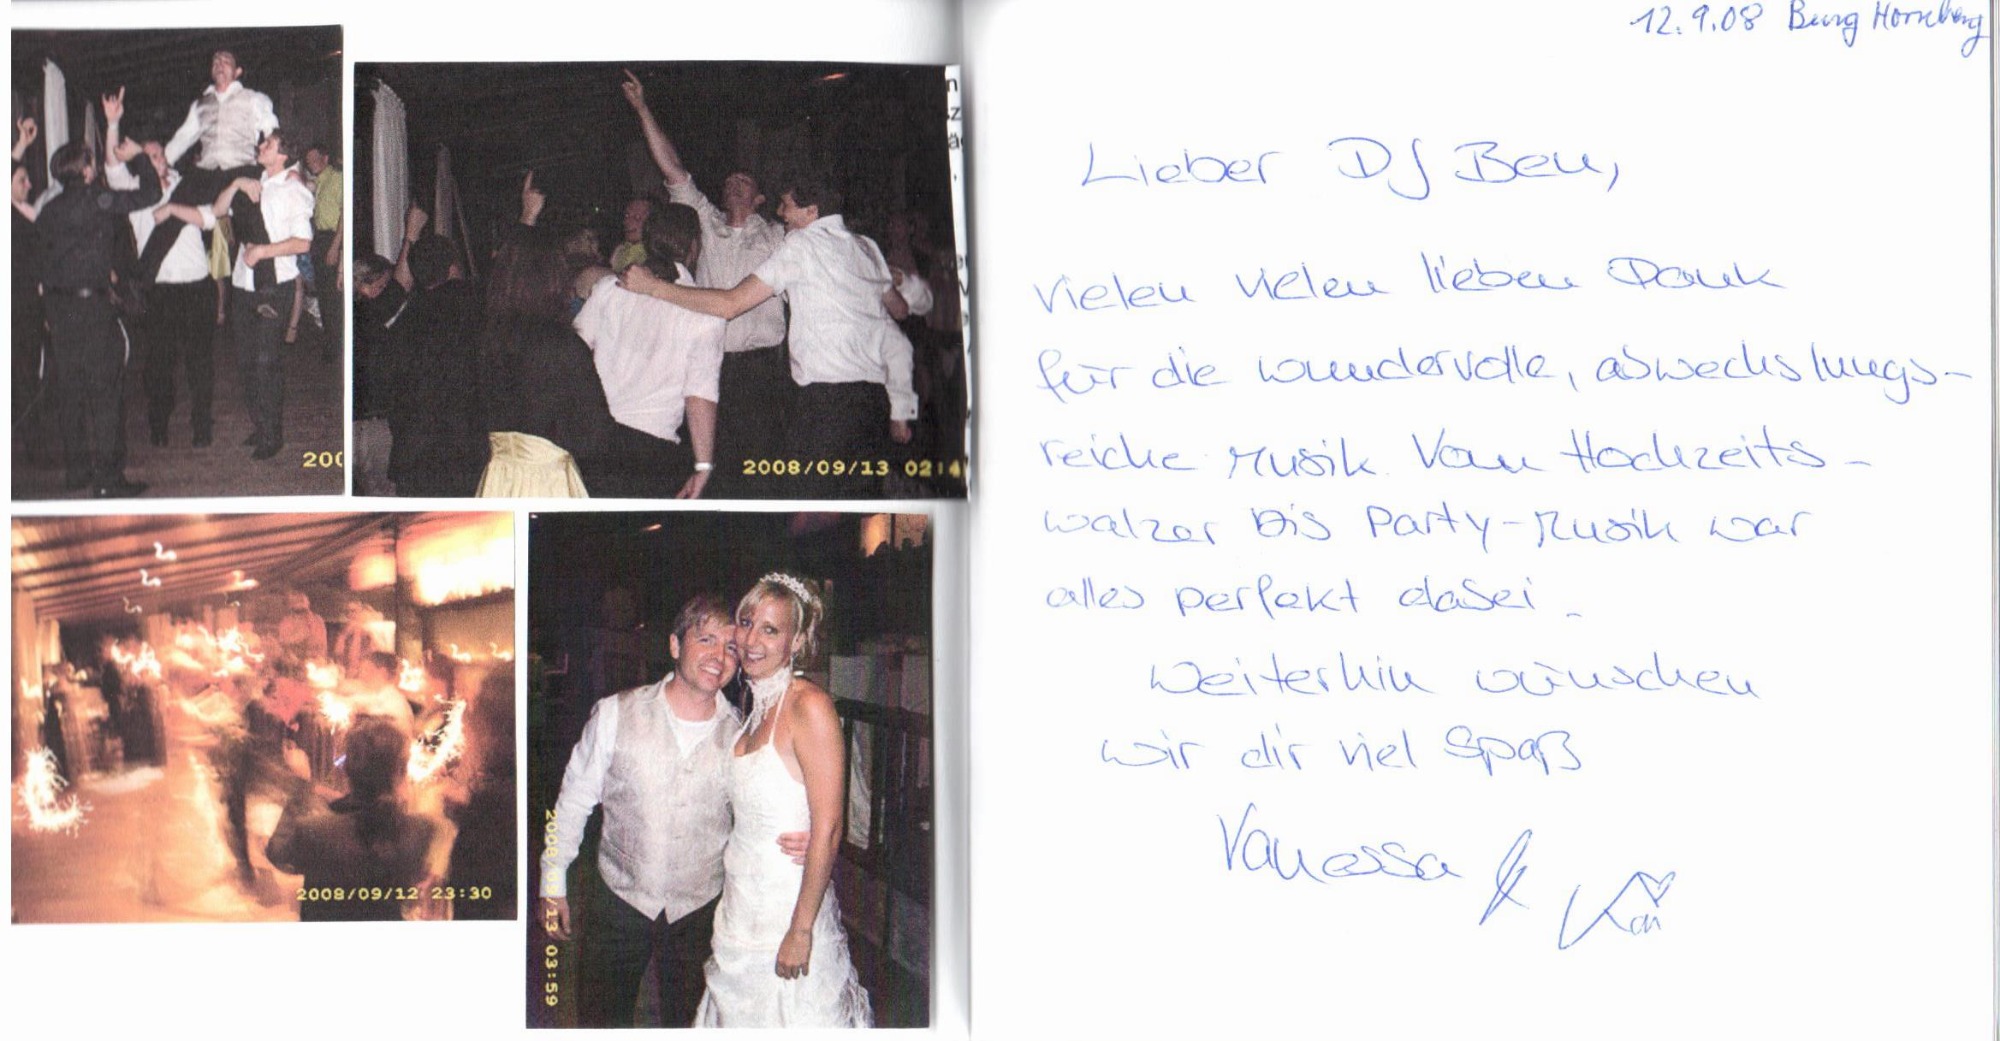 200
2008/09/13 02:4
2008/09/12 23:30
2008/09/13 03:59
n
z
ä
12.9.08 Burg Hornberg
Lieber DJ Ben,
vielen vielen lieben Dank
für die wundervolle, abwechslungs-
reiche Musik. Vom Hochzeits-
walzer bis Party-Musik war
alles perfekt dabei.
Weiterhin wünschen
wir dir viel Spaß
Vanessa & Kai